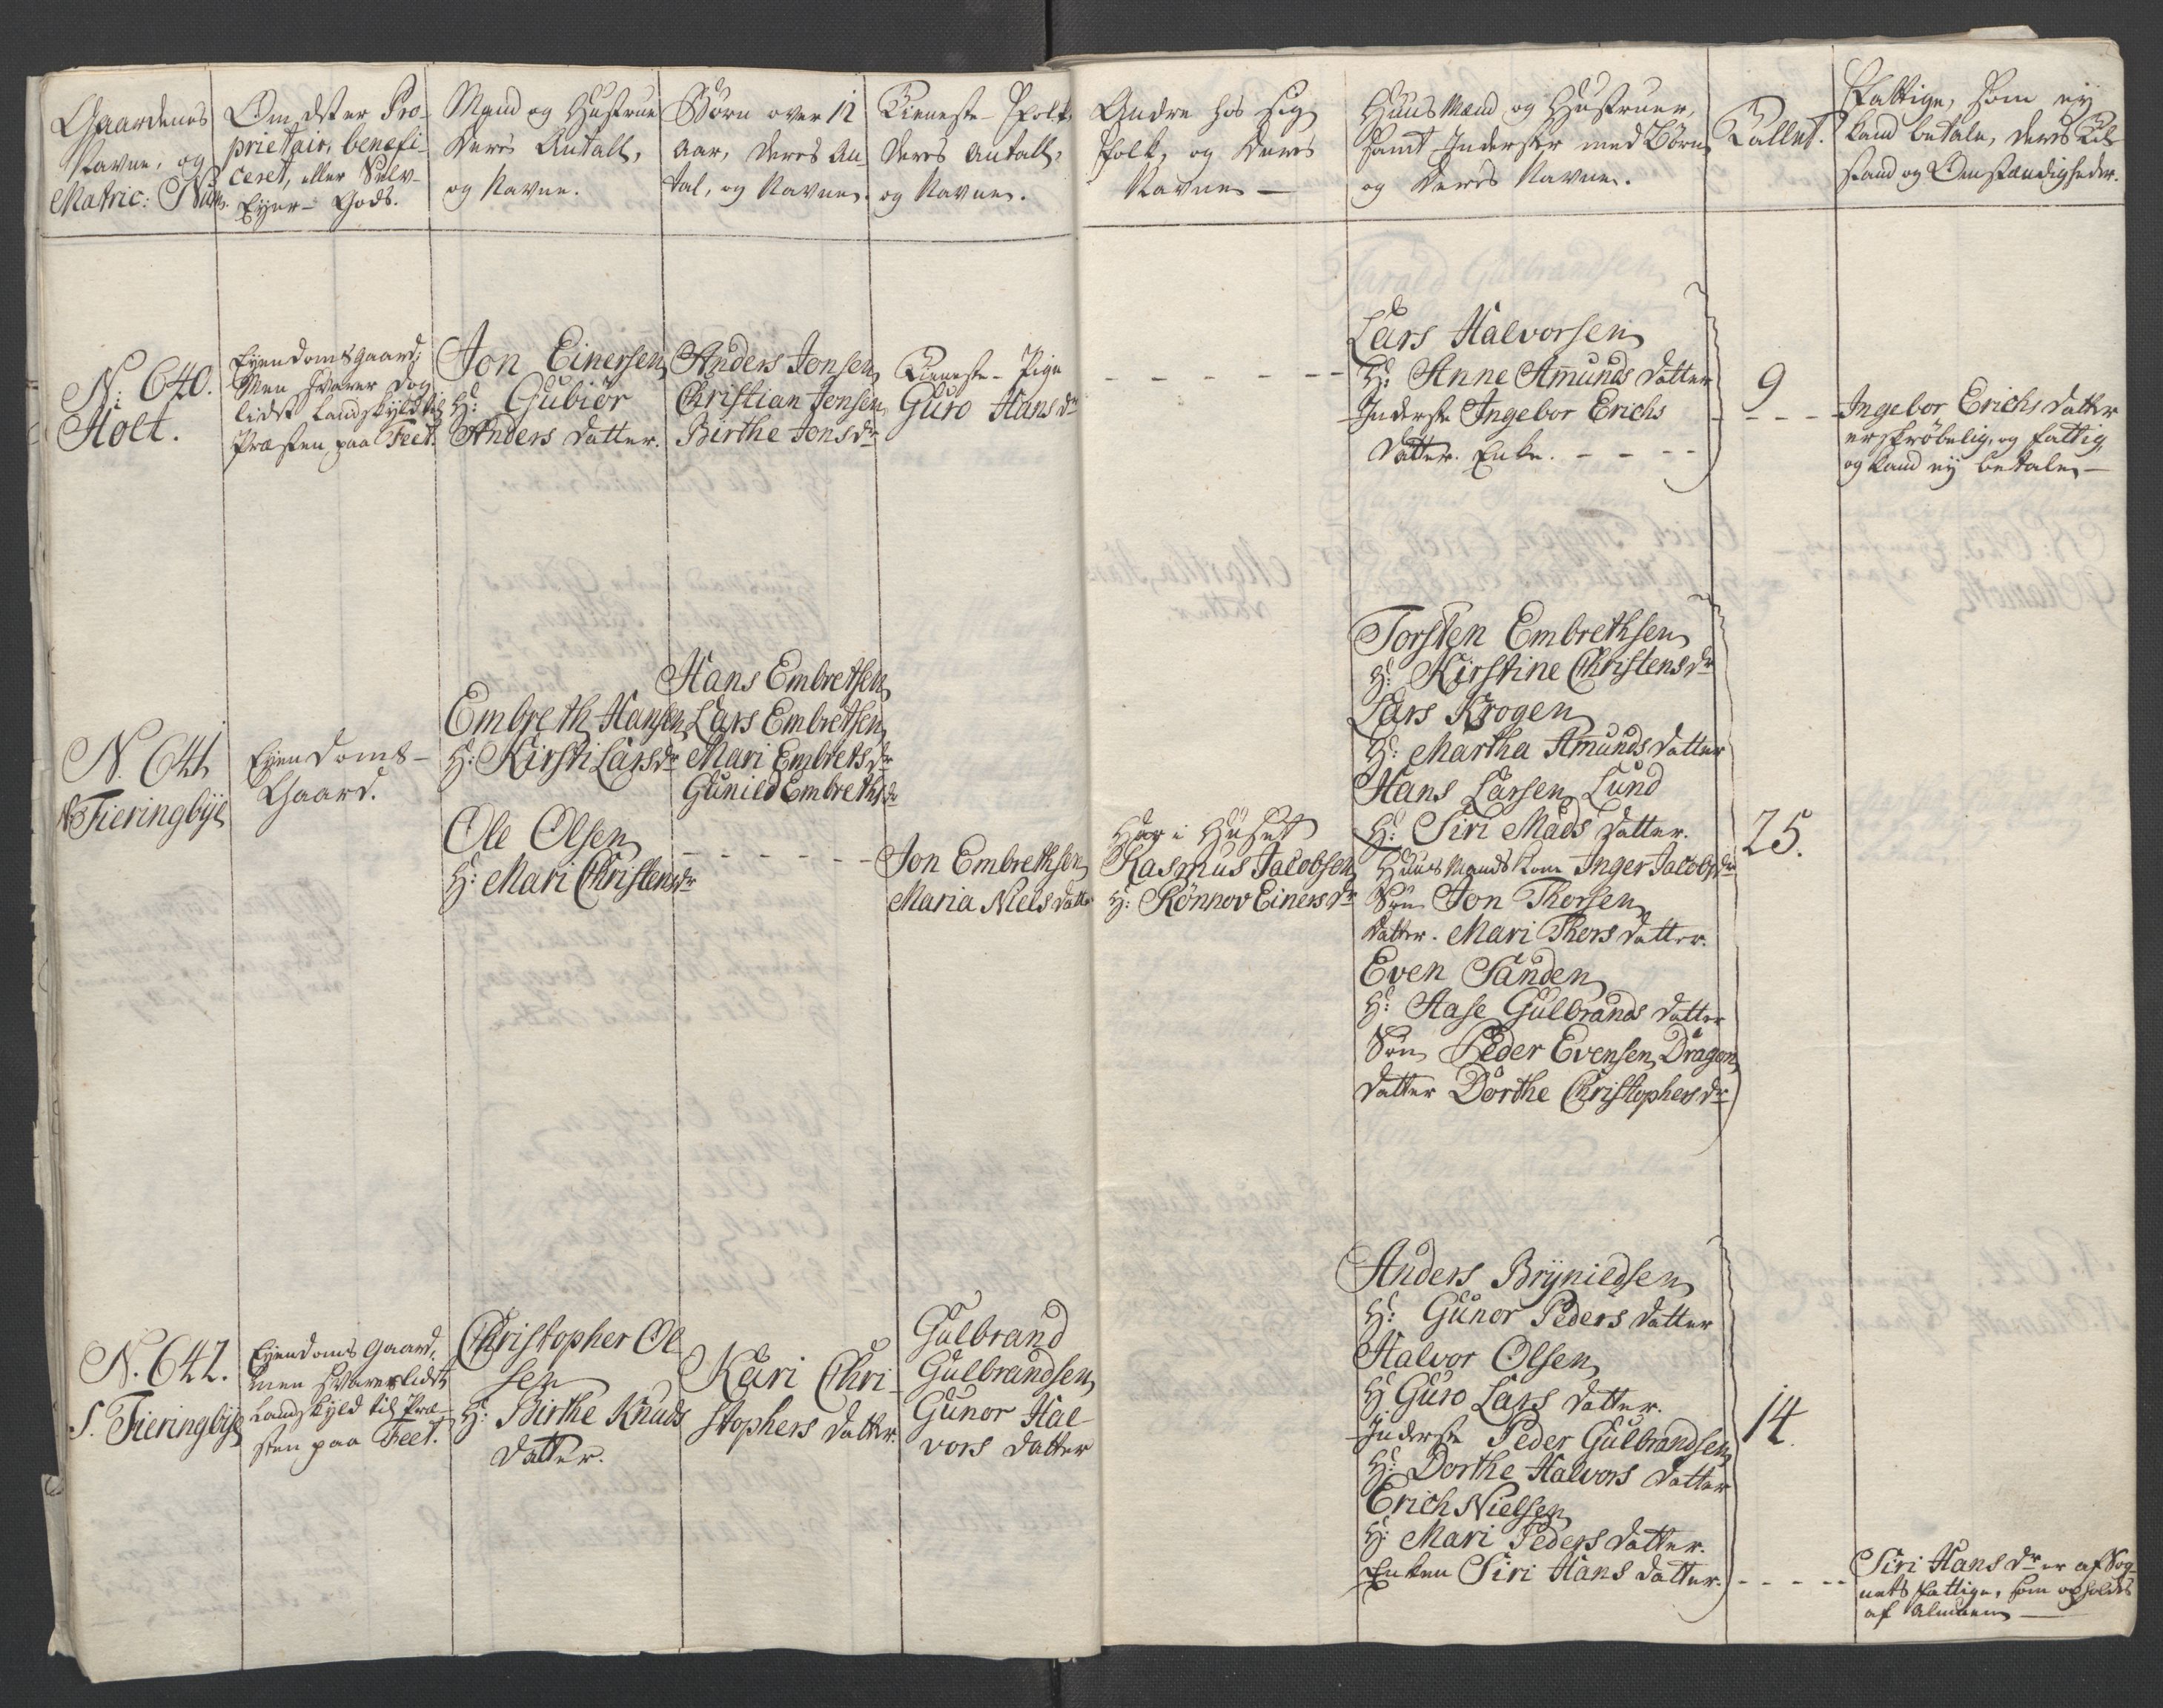 Gaardenes
Navne, og
Matric: Num:
Om det er Pro-
prietair, benefi-
ceret, eller Selv-
Eyer-Gods.
Mand og Hustrue
deres Antall,
og Navne.
Børn over 12
aar, deres An-
tal, og Navne.
Tieneste-Folk,
deres antall,
og Navne.
Andre hos sig
Folk, og deres
Navne —
Huusmænd og Hustruer,
samt Inderster med Børn
og deres Navne.
Tallet.
Fattige, som ey
kand betale, deres Til-
stand og Omstændigheder.
N: 640.
Holt.
Eyendomsgaard,
Men svarer dog
lidet Landskyld til
Præsten paa Feet.
Jon Einersen
H: Gubiør
Anders datter.
Anders Jonsen
Christian Jonsen
Birthe Jons dr
Tieneste-Pige
Guro Hans dr
Lars Halvorsen
H: Anne Amunds datter
Inderste Ingebor Erichs
datter. Enke.
9
Ingebor Erichs datter
er skrøbelig, og fattig,
og kand ey betale —
N. 641
N. Fieringbÿe
Eyendoms-
Gaard.
Embreth Hansen
H: Kirsti Lars dr
Ole Olsen
H: Mari Christens dr
Hans Embretsen
Lars Embretsen
Mari Embrets dr
Gunild Embreths dr
Jon Embrethsen
Maria Niels datter
Her i Huset
Rasmus Jacobsen
H: Rønnov Einers dr
Torsten Embrethsen
H: Kirstine Christens dr
Lars Krogen
H: Martha Amunds datter
Hans Larsen Lund
H: Siri Mads datter.
Huusmands kone Inger Jacobs dr
Søn Jon Thorsen
datter. Mari Thors datter.
Even Sanden
H: Aase Gulbrands datter
Søn Peder Evensen Dragon
datter Dorthe Christophers dr
25.
N. 642.
S. Fieringbÿe
Eyendoms Gaard,
men svarer lidet
Landskyld til Præ-
sten paa Feet.
Christopher Ol-
sen
H: Birthe Knuds
datter.
Kari Chri-
stophers datter.
Gulbrand
Gulbrandsen
Gunor Hal-
vors datter
Anders Brÿnildsen
H: Gunor Peders datter
Halvor Olsen
H: Guro Lars datter.
Inderste Peder Gulbrandsen
H: Dorthe Halvors datter
Erich Nielsen
H: Mari Peders datter.
Enken Siri Hans datter.
14.
Siri Hans dr er af Sog-
nets fattige, som opholdes
af Almuen —